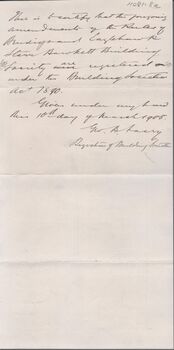 This is to certify that the foregoing
amendments of the Rules of
Bendigo and Eaglehawk
Star Bowkett Building
Society were registered
under the Building Societies
Act 1890.
Given under my hand
this 10th day of March 1905.
Registrar of Building Societies